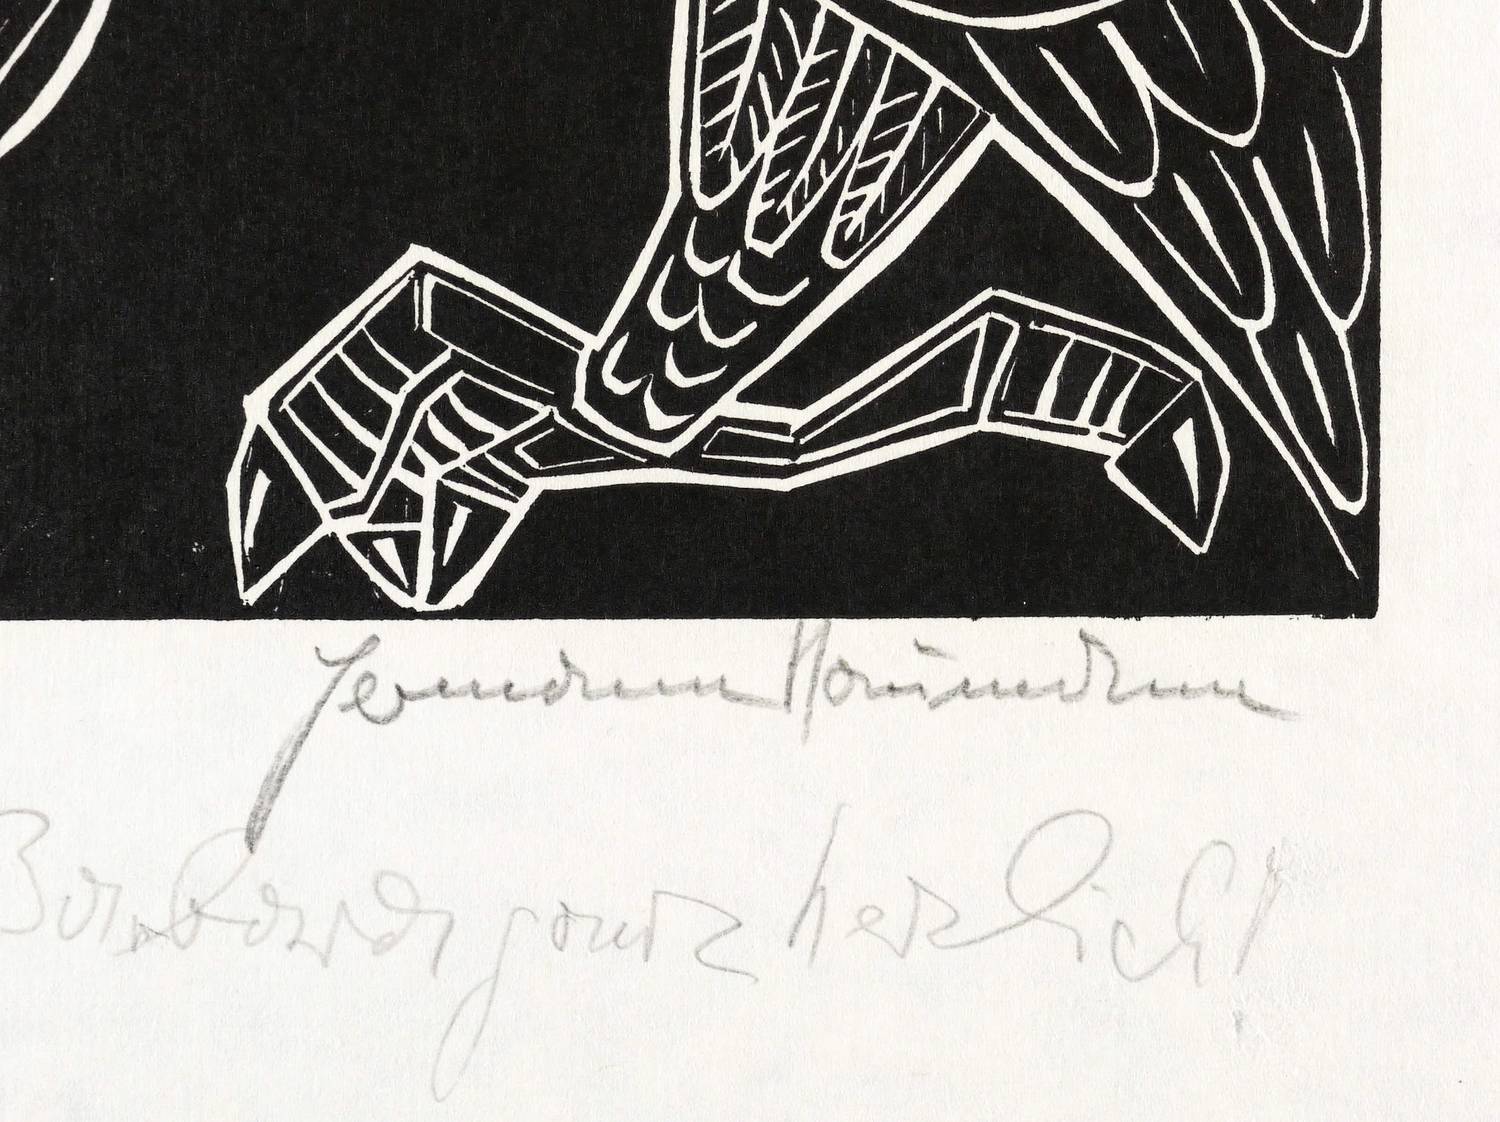 Hermann Naumann
ganz herzlich!